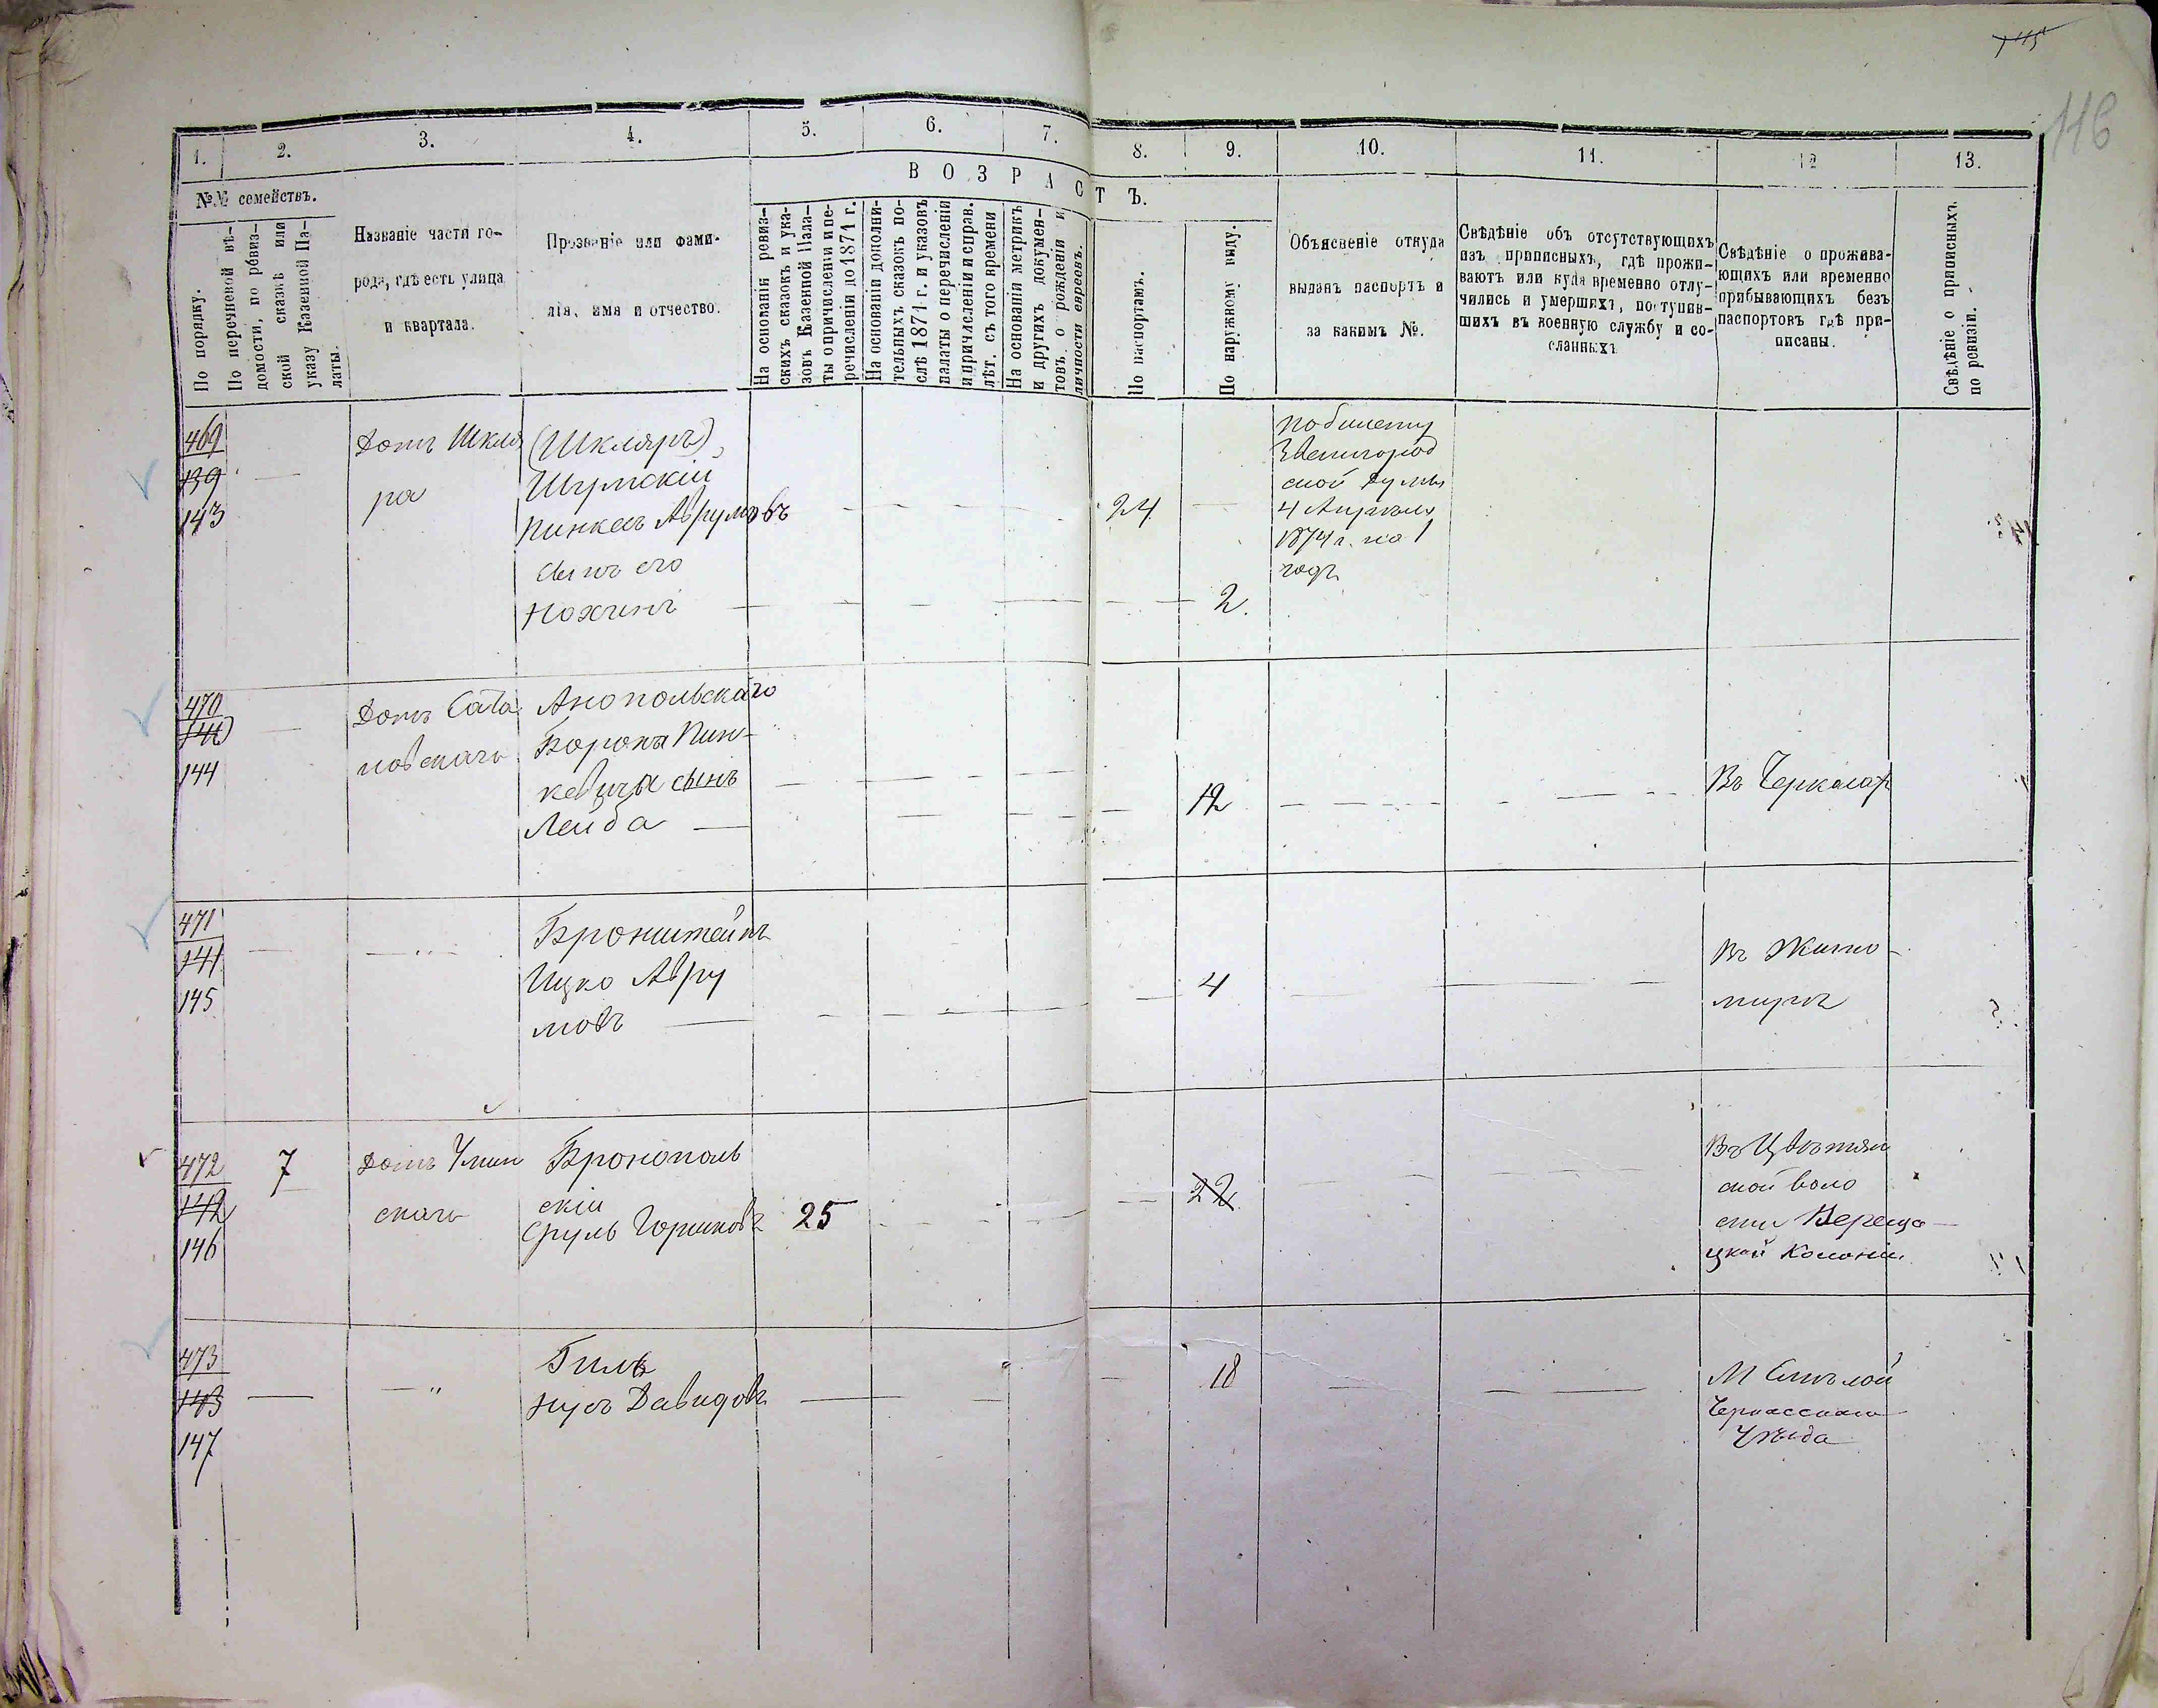 115
116
1.
2.
3.
4.
5.
6.
7.
8.
9.
10.
11.
12
13.
№№ семействъ.
По порядку.
По перечневой вѣ-
домости, по ревиз-
ской сказкѣ или
указу Казенной Па-
латы.
Названіе части го-
рода, гдѣ есть улица
и квартала.
Прозваніе или фами-
лія, имя и отчество.
ВОЗРАСТЪ.
На основаніи ревиз-
скихъ сказокъ и ука-
зовъ Казенной Пала-
ты о причисленіи и пе-
речисленіи до 1871 г.
На основаніи дополни-
тельныхъ сказокъ по-
слѣ 1871 г. и указовъ
палаты о перечисленіи
и причисленіи и справ.
лѣт. съ того времени
На основаніи метрикъ
и другихъ докумен-
товъ, о рожденіи и
личности евреевъ.
По паспортамъ.
По наружному виду.
Объясненіе откуда
выданъ паспортъ и
за какимъ №.
Свѣдѣніе объ отсутствующихъ
изъ приписныхъ, гдѣ прожи-
ваютъ или куда временно отлу-
чились и умершихъ, поступив-
шихъ въ военную службу и со-
сланныхъ
Свѣдѣніе о прожива-
ющихъ или временно
прибывающихъ безъ
паспортовъ гдѣ при-
писаны.
Свѣдѣніе о приписныхъ
по ревизіи.
469
139
143
Домъ Шкля
ра
(Шкляръ)
Шумскій
Пинкасъ Аврумовъ
сынъ его
Нохимъ
24
2.
По билету
Звенигород
ской Думы
4 Апрѣля
1874 г. на 1
годъ
470
140
144
Домъ Сата
новскаго
Анопольскаго
Бороха Пин-
кевича сынъ
Лейба
12
Въ Черкасах
471
141
145
Бронштейнъ
Ицко Авру
мовъ
4
Въ Жито-
миръ
472
142
146
7
Домъ Уман
скаго
Бронополь
скій
Сруль Горшковъ
25
22
Въ Цвѣтян
ской воло
сти Вереща
цкой Колоніи
473
143
147
Гиль
Нусъ Давидовъ
18
М Смѣлой
Черкасскаго
Уѣзда